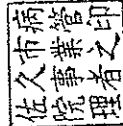 佐久市病
院事業管
理者之印